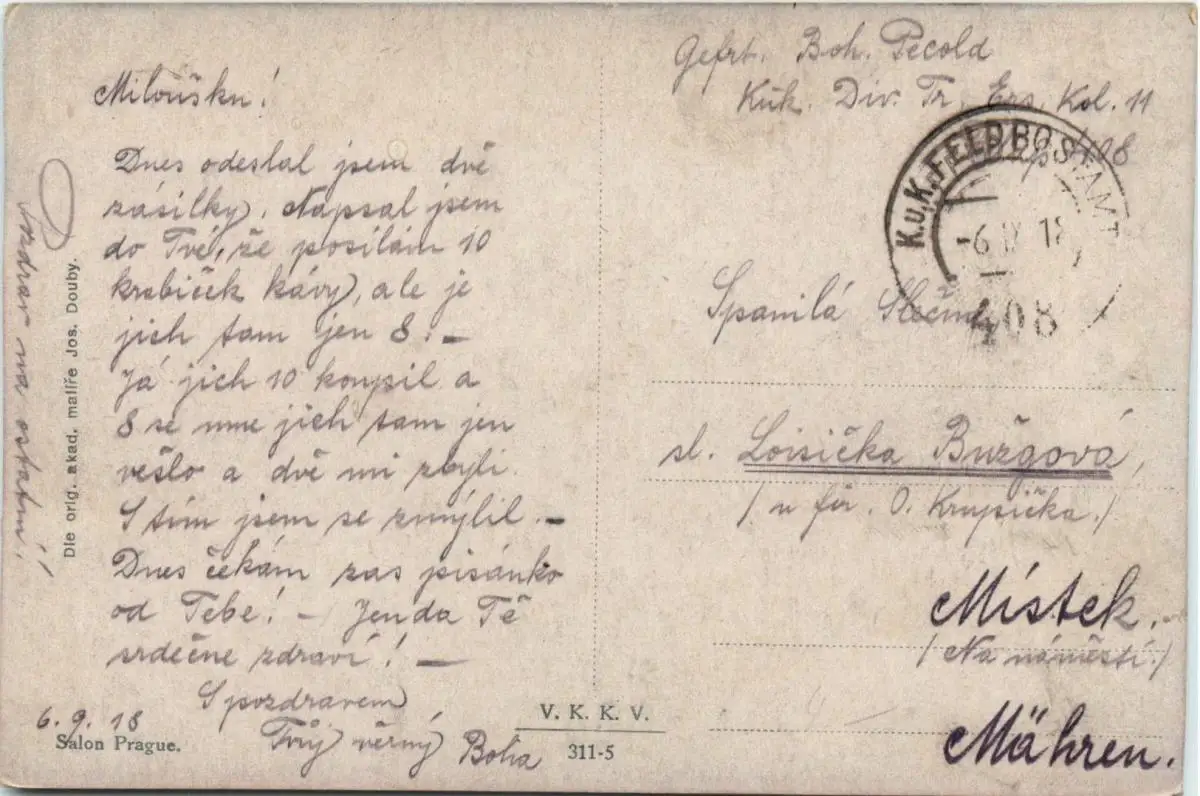 Miloušku!
Dnes odeslal jsem dvě
zásilky. Napsal jsem
do Tvé, že posílám 10
krabiček kávy, ale je
jich tam jen 8. –
Já jich 10 koupil a
8 se mne jich tam jen
vešlo a dvě mi zbyli.
S tím jsem se zmýlil. –
Dnes čekám zas psánko
od Tebe! – Jenda Tě
srdečne zdraví! –
S pozdravem
Tvůj věrný Boha
6. 9. 18
Salon Prague.
Pozdrav na ostatní!
Dle orig. akad. malíře Jos. Douby.
V. K. K. V.
311-5
Gefrt. Boh. Pecold
Kuk. Div. Tr. Ers. Kol. 11
408
K.u.K. FELDPOSTAMT
-6 IX 18
408
Spanilá Slečna
sl. Loisička Buržgová,
/ u fir. O. Krupička./
Místek.
/ Na náměstí./
Mähren.